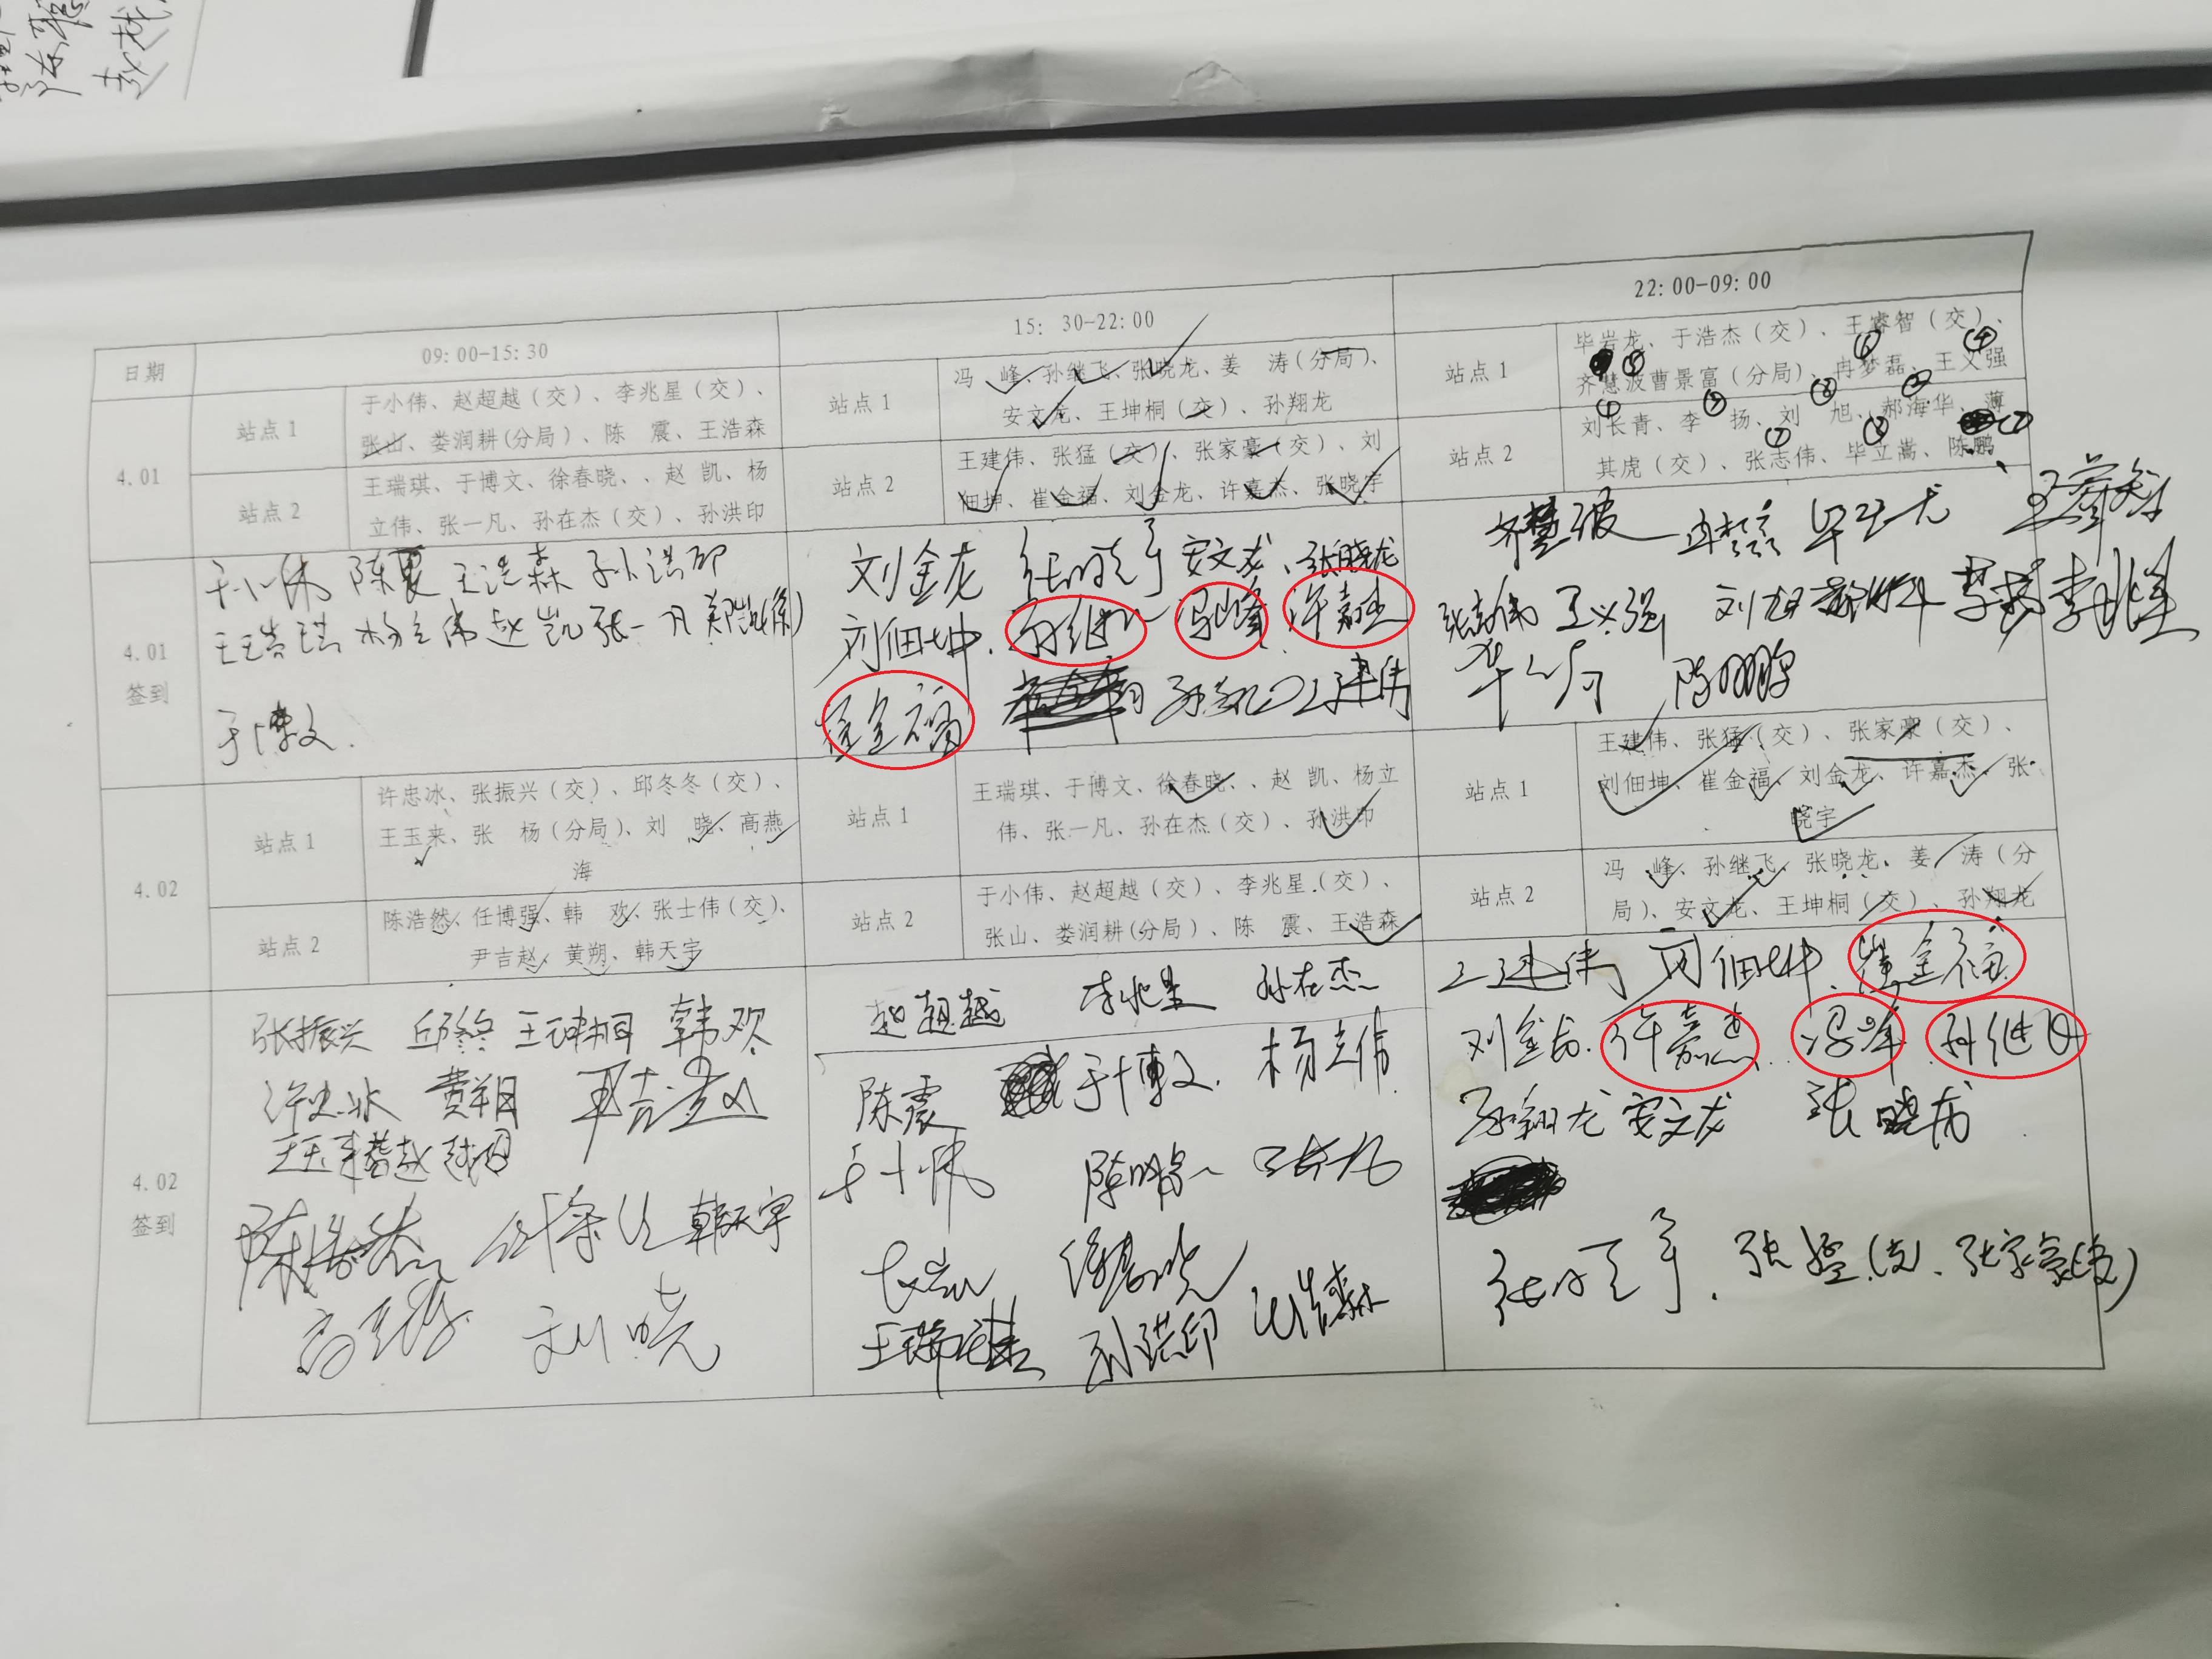 日期
09:00-15:30
15: 30-22:00
22:00-09:00
4.01
站点1
于小伟、赵超越（交）、李兆星（交）、
张山、娄润耕(分局）、陈 震、王浩森
站点1
冯 峰、孙继飞、张晓龙、姜 涛(分局）、
安文龙、王坤桐（交）、孙翔龙
站点1
毕岩龙、于浩杰（交）、王睿智（交）、
齐慧波曹景富（分局）、冉梦磊、王义强
站点2
王瑞琪、于博文、徐春晓、、赵 凯、杨
立伟、张一凡、孙在杰（交）、孙洪印
站点2
王建伟、张猛（交）、张家豪（交）、刘
佃坤、崔金福、刘金龙、许嘉杰、张晓宇
站点2
刘长青、李 扬、刘 旭、郝海华、薄
其虎（交）、张志伟、毕立嵩、陈鹏
4.01
签到
于小伟 陈震 王浩森 孙洪印
王瑞琪 杨立伟 赵凯 张一凡
于博文
刘金龙 张晓宇 安文龙、张晓龙
刘佃坤. 孙继飞 冯峰 许嘉杰
崔金福 王建伟
齐慧波 王睿智
张志伟 王义强 刘旭
4.02
站点1
许忠冰、张振兴（交）、邱冬冬（交）、
王玉来、张 杨（分局）、刘 晓、高燕
海
站点1
王瑞琪、于博文、徐春晓、、赵 凯、杨立
伟、张一凡、孙在杰（交）、孙洪印
站点1
王建伟、张猛（交）、张家豪（交）、
刘佃坤、崔金福、刘金龙、许嘉杰、张
晓宇
站点2
陈浩然、任博强、韩 欢、张士伟（交）、
尹吉赵、黄朔、韩天宇
站点2
于小伟、赵超越（交）、李兆星（交）、
张山、娄润耕(分局）、陈 震、王浩森
站点2
冯 峰、孙继飞、张晓龙、姜 涛（分
局）、安文龙、王坤桐（交）、孙翔龙
4.02
签到
张振兴 邱冬冬 王坤桐 韩欢
许忠冰 黄朔 尹吉赵
王玉来
陈浩然 韩天宇
刘晓
赵超越 李兆星 孙在杰
陈震 于博文. 杨立伟
于小伟
徐春晓
王瑞琪 孙洪印 王浩森
王建伟 刘佃坤. 崔金福
刘金龙. 许嘉杰. 冯峰 孙继飞
孙翔龙 安文龙 张晓龙
张晓宇. 张猛(交)、张家豪(交)